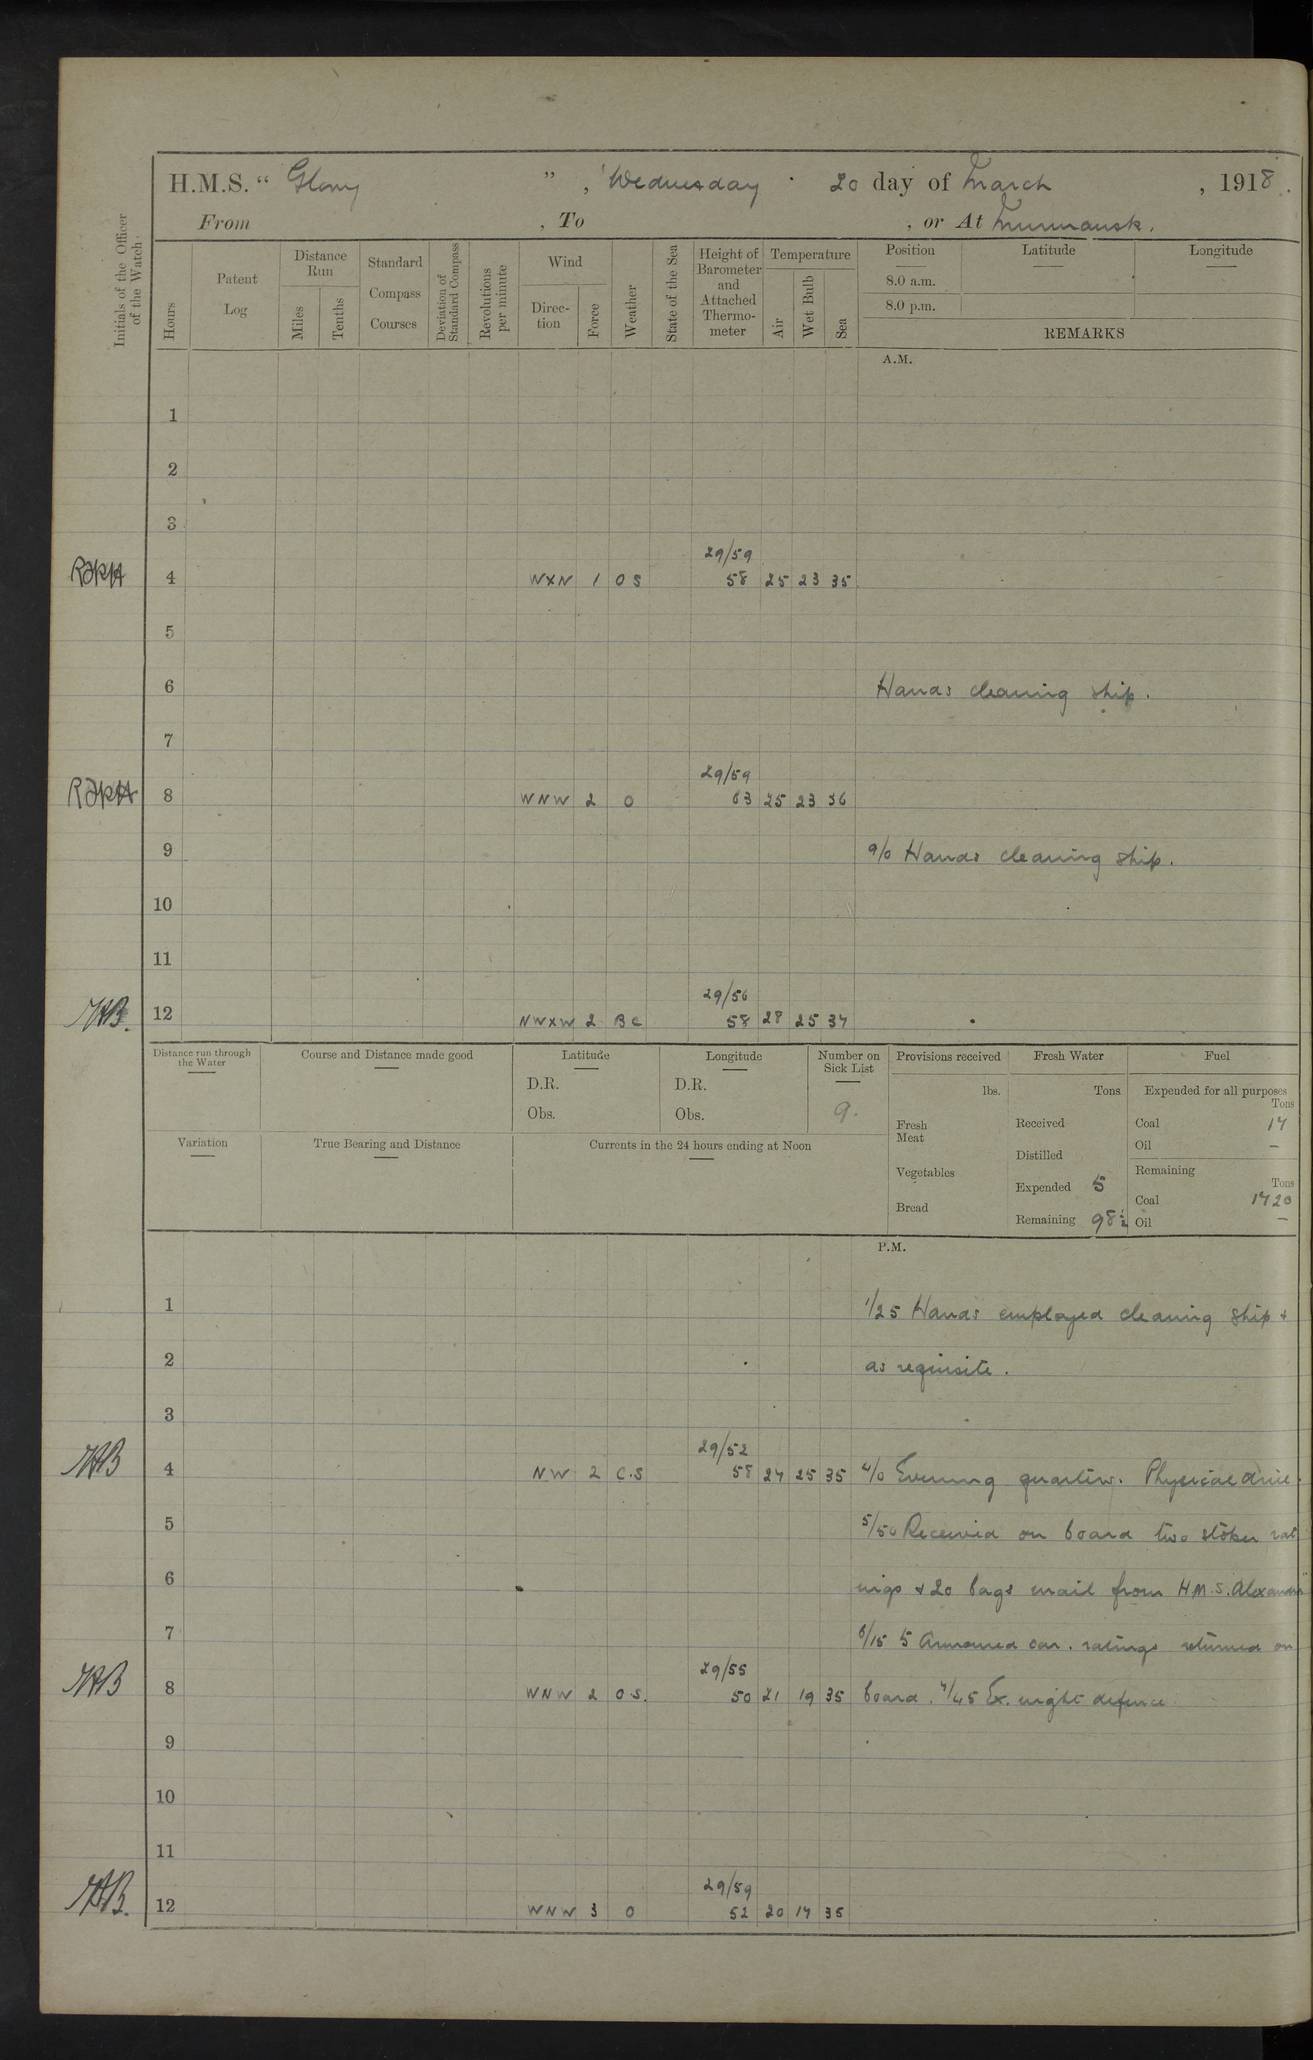 H.M.S. “ Glory ” , Wednesday 20 day of March , 1918.
From , To , or At Murmansk.
Initials of the Officer of the Watch.
Hours
Patent Log
Distance Run
Miles
Tenths
Standard Compass Courses
Deviation of Standard Compass
Revolutions per minute
Wind
Direction
Force
Weather
State of the Sea
Height of Barometer and Attached Thermometer
Temperature
Air
Wet Bulb
Sea
Position Latitude Longitude
8.0 a.m.
8.0 p.m.
REMARKS
A.M.
1
2
3
29/59
4 W×N 1 O S 58 25 23 35
5
6 Hands cleaning ship.
7
29/59
8 WNW 2 O 63 25 23 36
9 9/0 Hands cleaning ship.
10
11
29/56
MAB. 12 NW×W 2 B C 58 28 25 37
Distance run through the Water
Course and Distance made good
Latitude
D.R.
Obs.
Longitude
D.R.
Obs.
Number on Sick List
9.
Provisions received
lbs.
Fresh Meat
Vegetables
Bread
Fresh Water
Tons
Received
Distilled
Expended 5
Remaining 98½
Fuel
Expended for all purposes
Tons
Coal 17
Oil —
Remaining
Tons
Coal 1720
Oil —
Variation
True Bearing and Distance
Currents in the 24 hours ending at Noon
P.M.
1 1/25 Hands employed cleaning ship +
2 as requisite.
3
29/52
MAB 4 NW 2 C.S 58 27 25 35 4/0 Evening quarters. Physical drill.
5 5/50 Received on board two stoker rat
6 ings + 20 bags mail from H.M.S. Alexander
7 6/15 5 Armoured car. ratings returned on
29/55
MAB 8 WNW 2 O S. 50 21 19 35 board. 7/45 Ex. night defence
9
10
11
29/59
MAB. 12 WNW 3 O 52 20 17 35